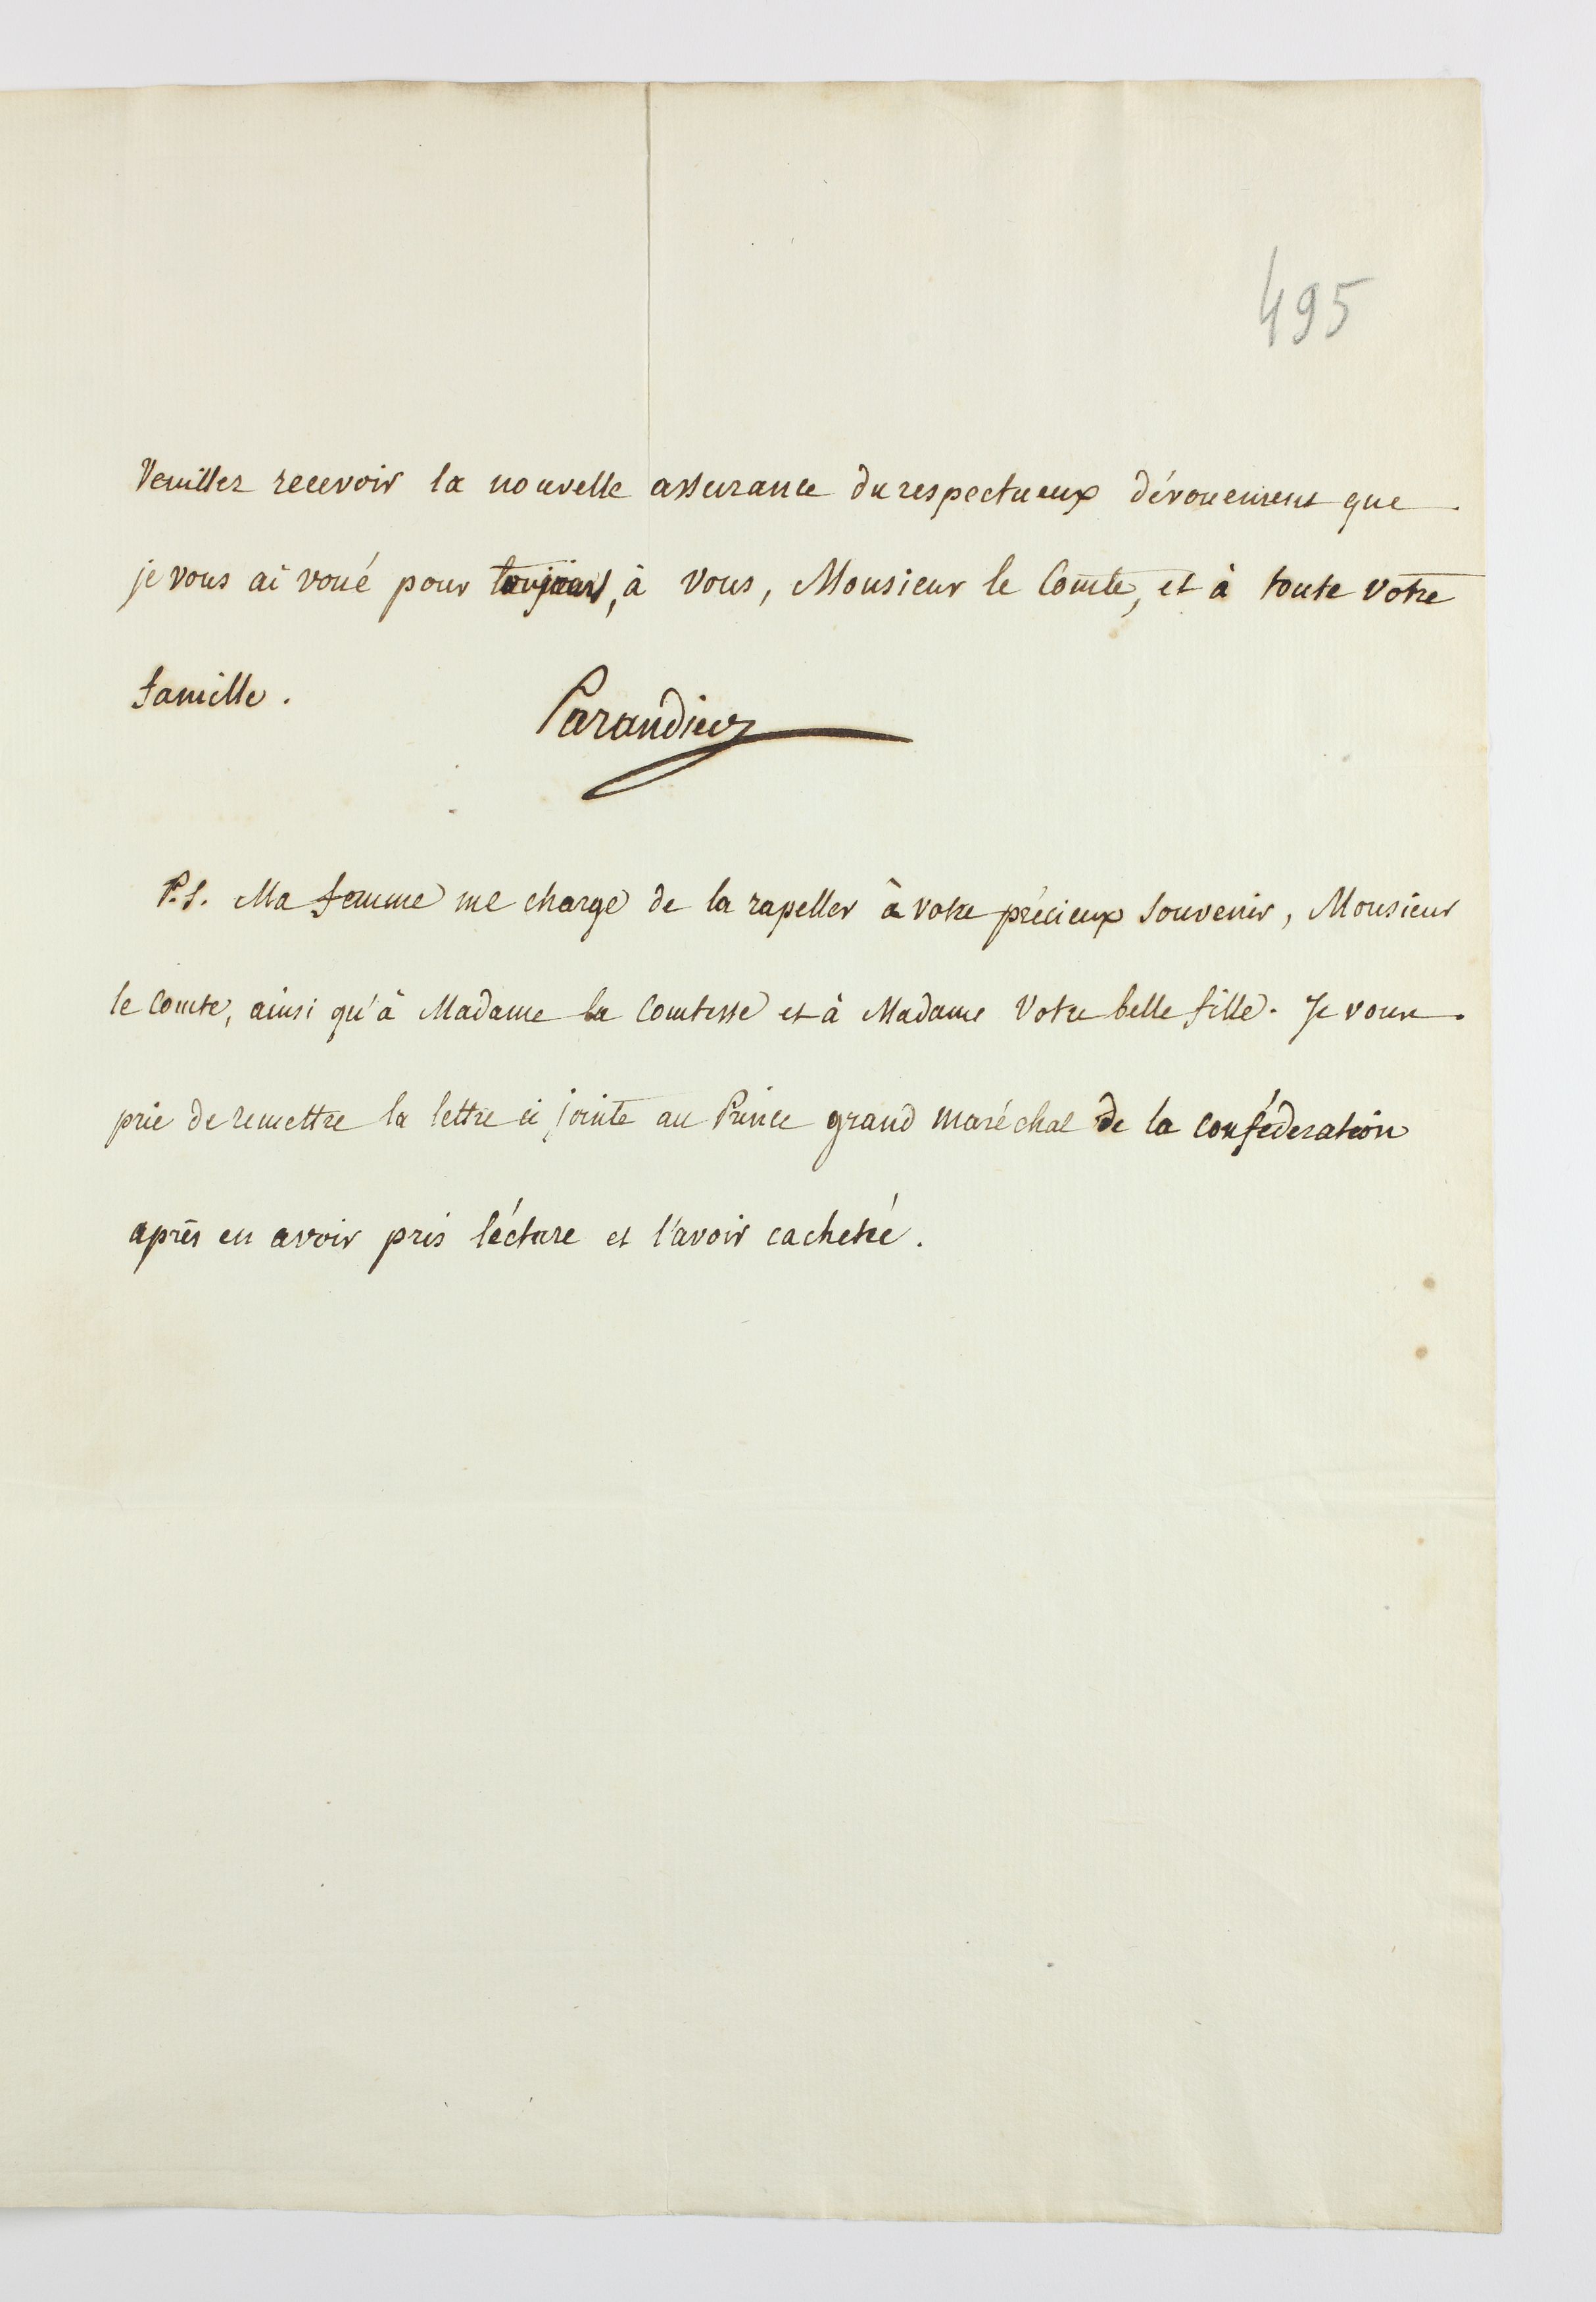 495
Veuillez recevoir la nouvelle assurance du respectueux dévouement que
je vous ai voué pour toujours, à vous, Monsieur le Comte, et à toute votre
famille.
Parandier
P.S. Ma femme me charge de la rapeller à votre précieux souvenir, Monsieur
le Comte, ainsi qu'à Madame la Comtesse et à Madame Votre belle fille. Je vous
prie de remettre la lettre ci jointe au Prince grand maréchal de la conféderation
après en avoir pris lécture et l'avoir cacheteé.